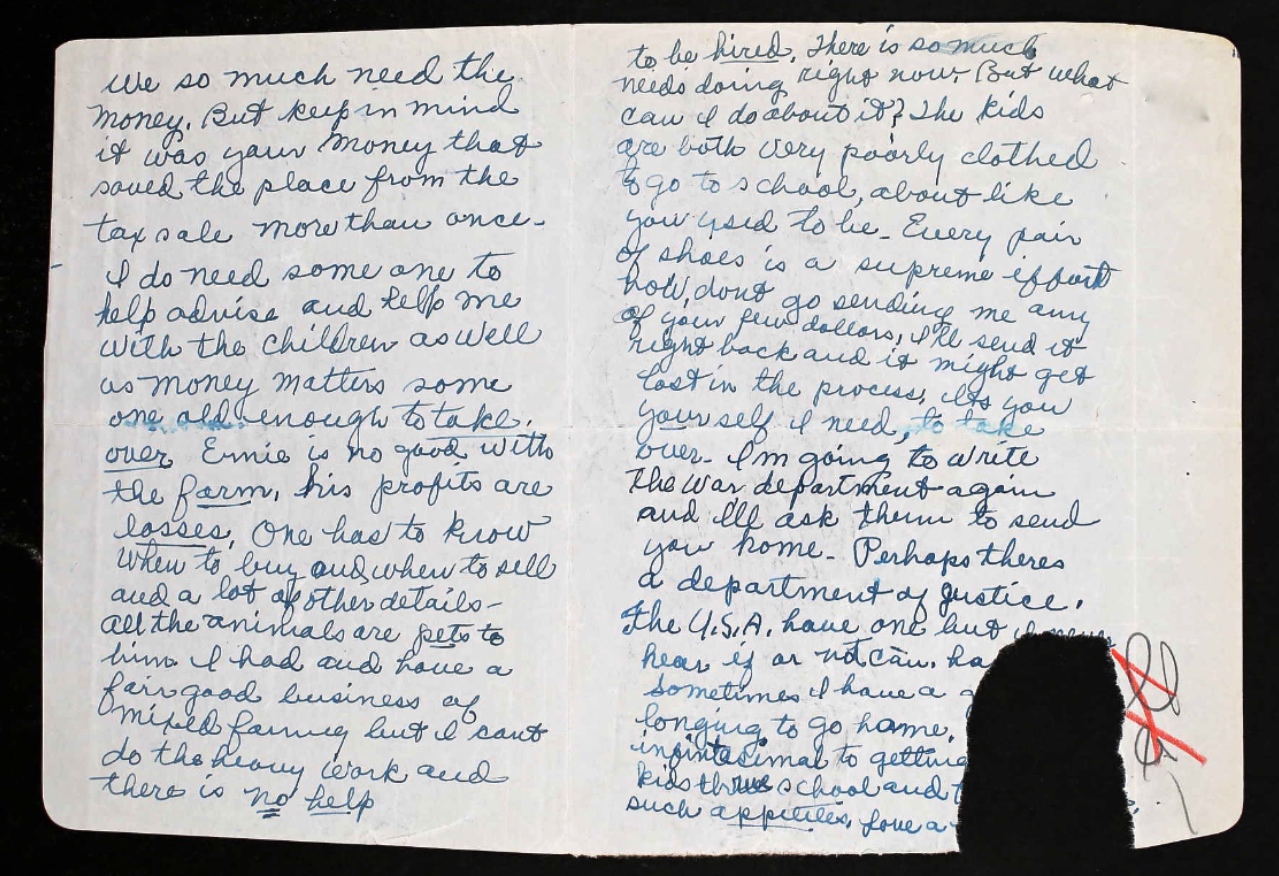 We so much need the
money. But keep in mind
it was your money that
saved the place from the
tax sale more than once -
I do need some one to
help advise and help me
with the children as well
as money matters some
one old enough to take
over Ernie is no good with
the farm, his profits are
losses. One has to know
when to buy and when to sell
and a lot of other details -
all the animals are pets to
him. I had and have a
fair good business of
mixed farming but I cant
do the heavy work and
there is no help
to be hired. There is so much
needs doing right now. But what
can I do about it? The kids
are both very poorly clothed
to go to school, about like
you used to be - Every pair
of shoes is a supreme effort
now, dont go sending me any
of your few dollars, I'll send it
right back and it might get
lost in the process, its you
your self I need, to take
over - I'm going to write
the war department again
and I'll ask them to send
you home - Perhaps theres
a department of justice.
The U.S.A. have one but I never
hear if or not Can. ha
Sometimes I have a
longing to go home,
infintasimal to getting
kids thru school and
such appitites. Love a